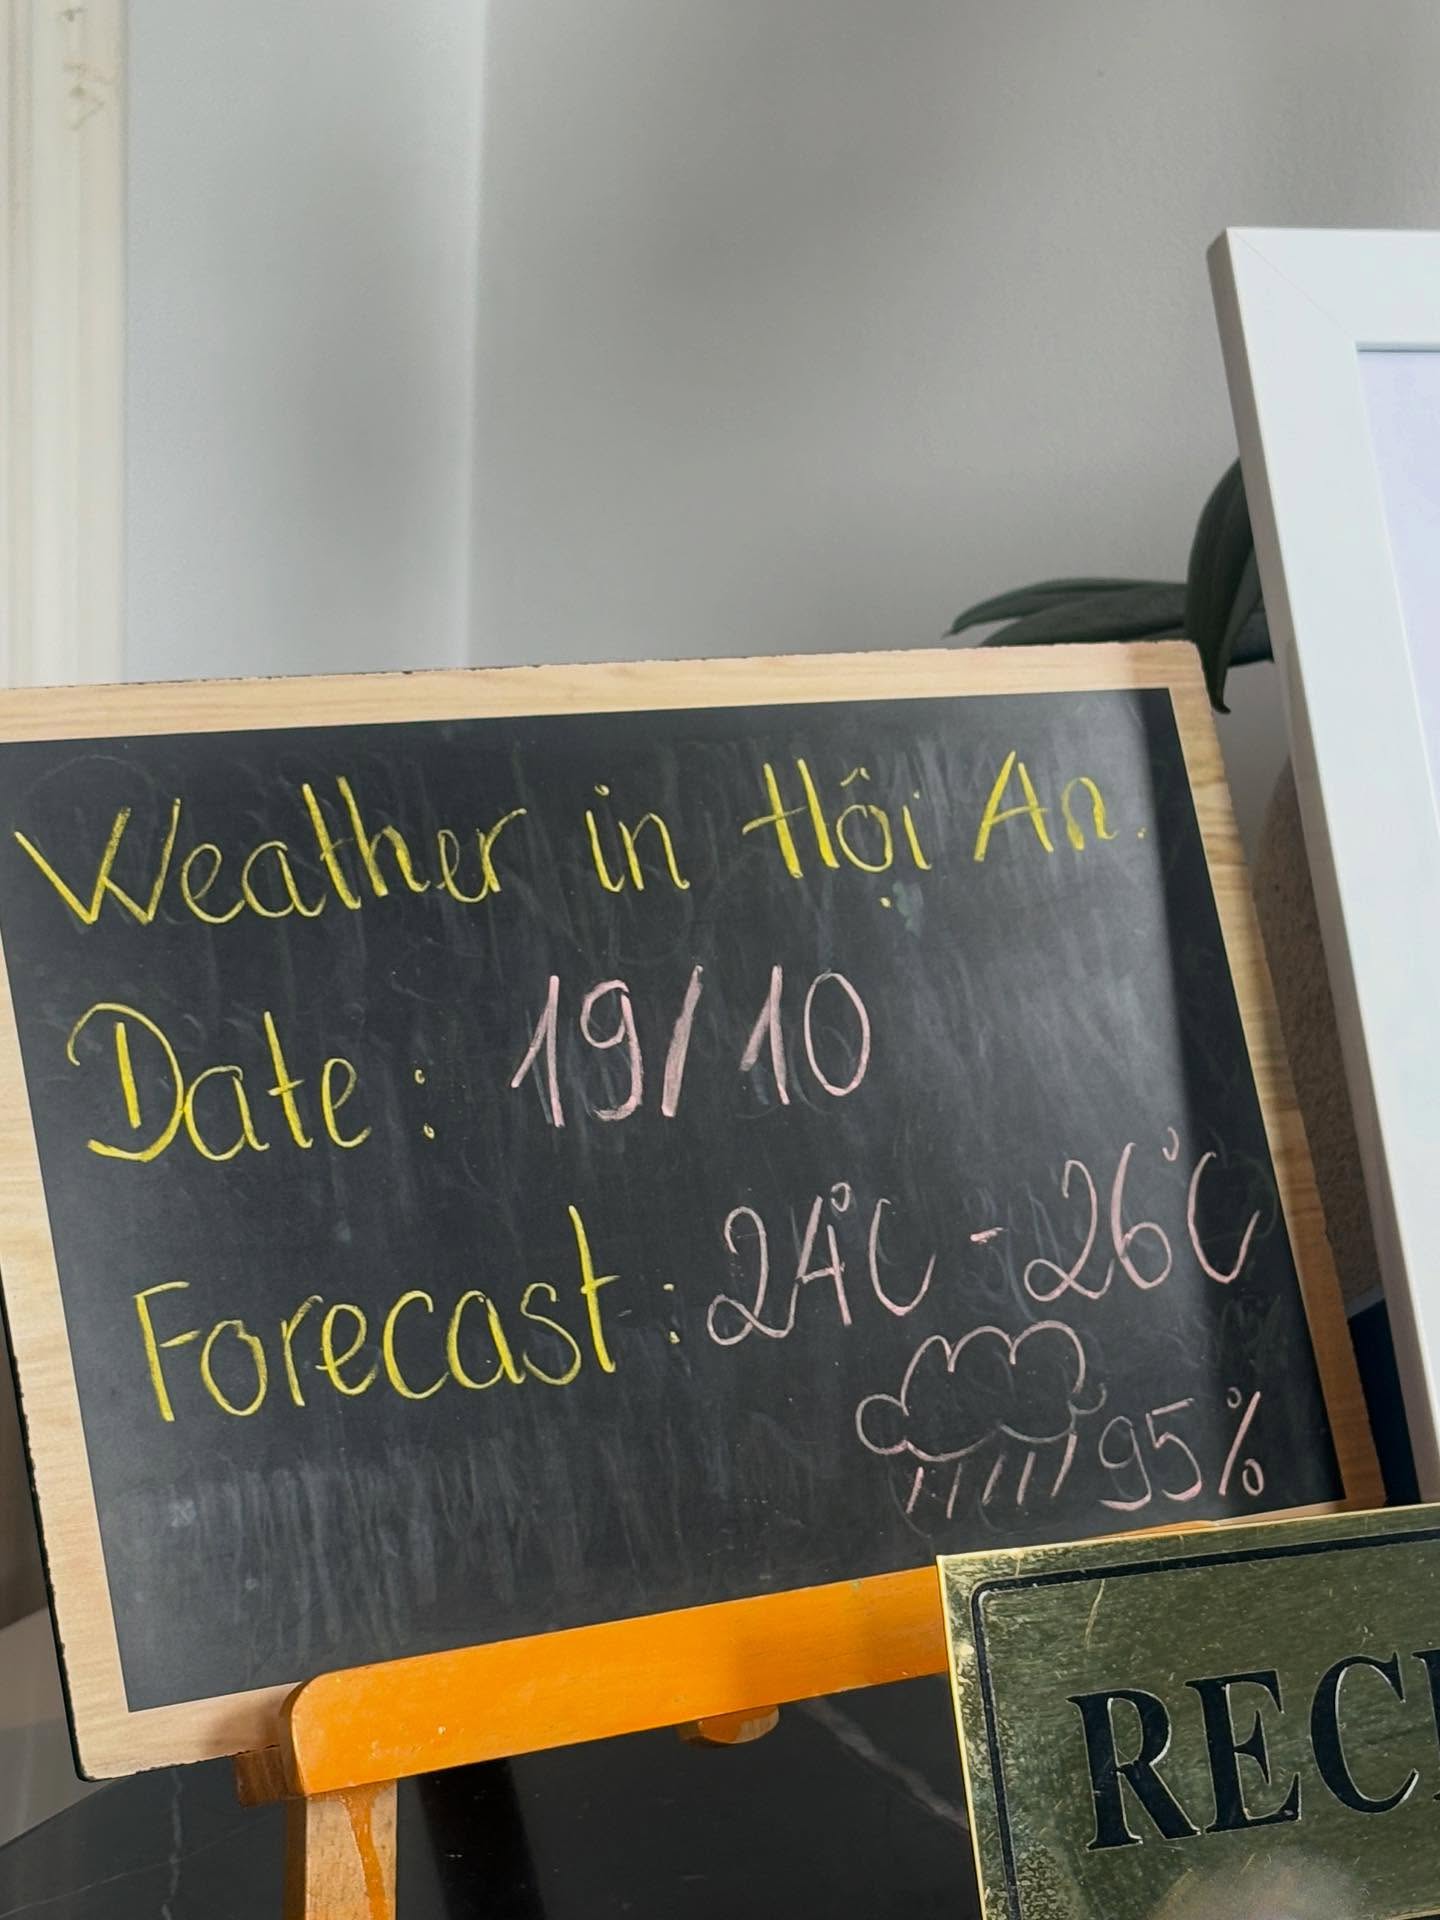 Weather in Hội An.
Date: 19/10
Forecast: 24°C - 26°C
95%